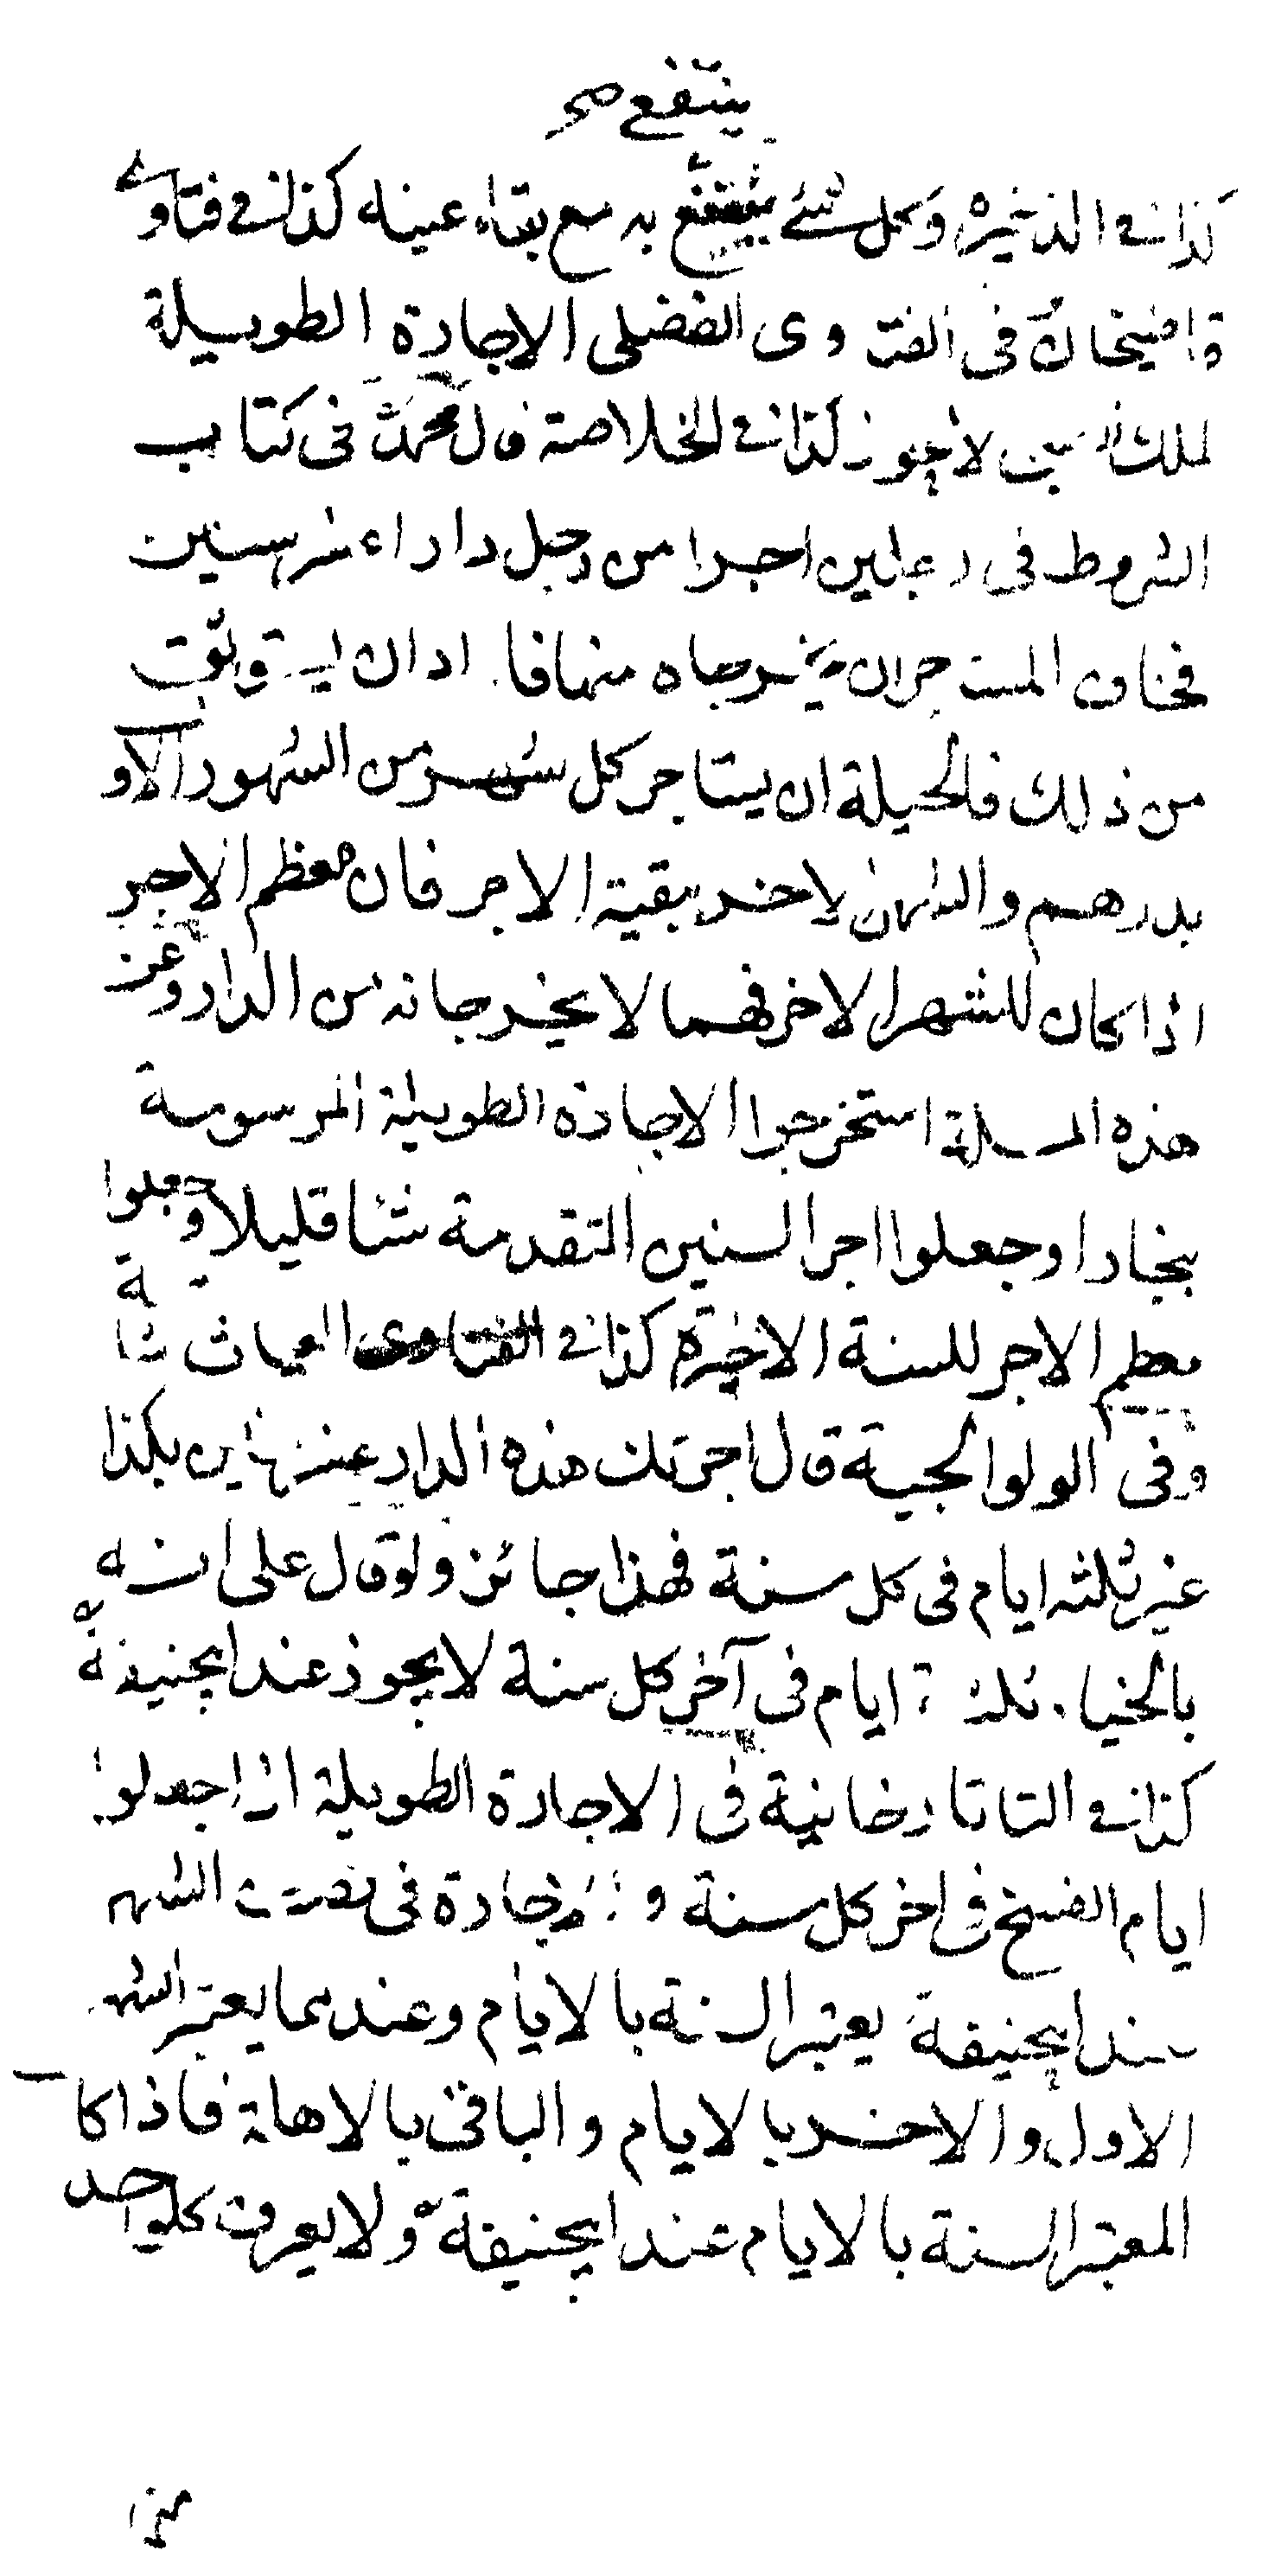 ينتفع صح
كذا في الذخيرة وكل شئ ينتفع به مع بقاء عينه كذا في فتاوى
قاضيخان في الفتاوى الفضلى الاجارة الطويلة
لا يجوز كذا في الخلاصة قال محمد في كتاب
الشروط في رجلين اجرا من رجل دارا عشر سنين
فخاف المستاجر ان يخرجاه منها فاراد ان يستوثق
من ذلك فالحيلة ان يستاجر كل شهر من الشهور الاول
بدرهم والشهر الاخر ببقية الاجر فان معظم الاجر
اذا كان للشهر الاخر فهما لا يخرجانه من الدار وعن
هذه المسئلة استخرجوا الاجارة الطويلة المرسومة
ببخارا وجعلوا اجر السنين المتقدمة شئا قليلا وجعلوا
معظم الاجر للسنة الاخيرة كذا في الفتاوى الغياثية
وفي الولوالجية قال اجرتك هذه الدار عشر سنين بكذا
غير ثلثه ايام في كل سنة فهذا جائز ولو قال على انه
بالخيار ثلثة ايام في آخر كل سنة لا يجوز عند ابيحنيفة
كذا في التاتارخانية في الاجارة الطويلة اذا جعلوا
ايام الفسخ في اخر كل سنة والاجارة في نصف الشهر
عند ابيحنيفة يعتبر السنة بالايام وعندهما يعتبر الشهر
الاول والاخر بالايام والباقي بالاهلة فاذا كا
المعتبر السنة بالايام عند ابيحنيفة ولا يعرف كلواحد